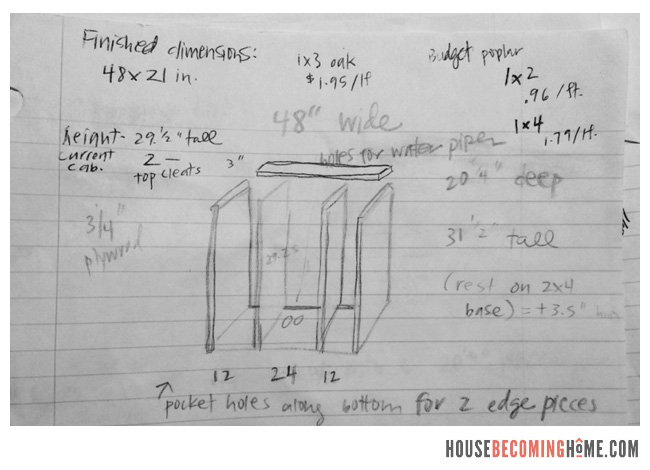 Finished dimensions:
48x21 in.
1x3 oak
$1.95/lf
Budget poplar
1x2
.96/ft.
1x4
1.79/lf.
48" wide
height- 29 1/2" tall
current
cab.
2 -
top cleats
3"
holes for water pipes
20 "4" deep
3/4"
plywood
31 1/2" tall
(rest on 2x4
base) = +3.5"
00
12 24 12
pocket holes along bottom for 2 edge pieces
HOUSEBECOMINGHOME.COM